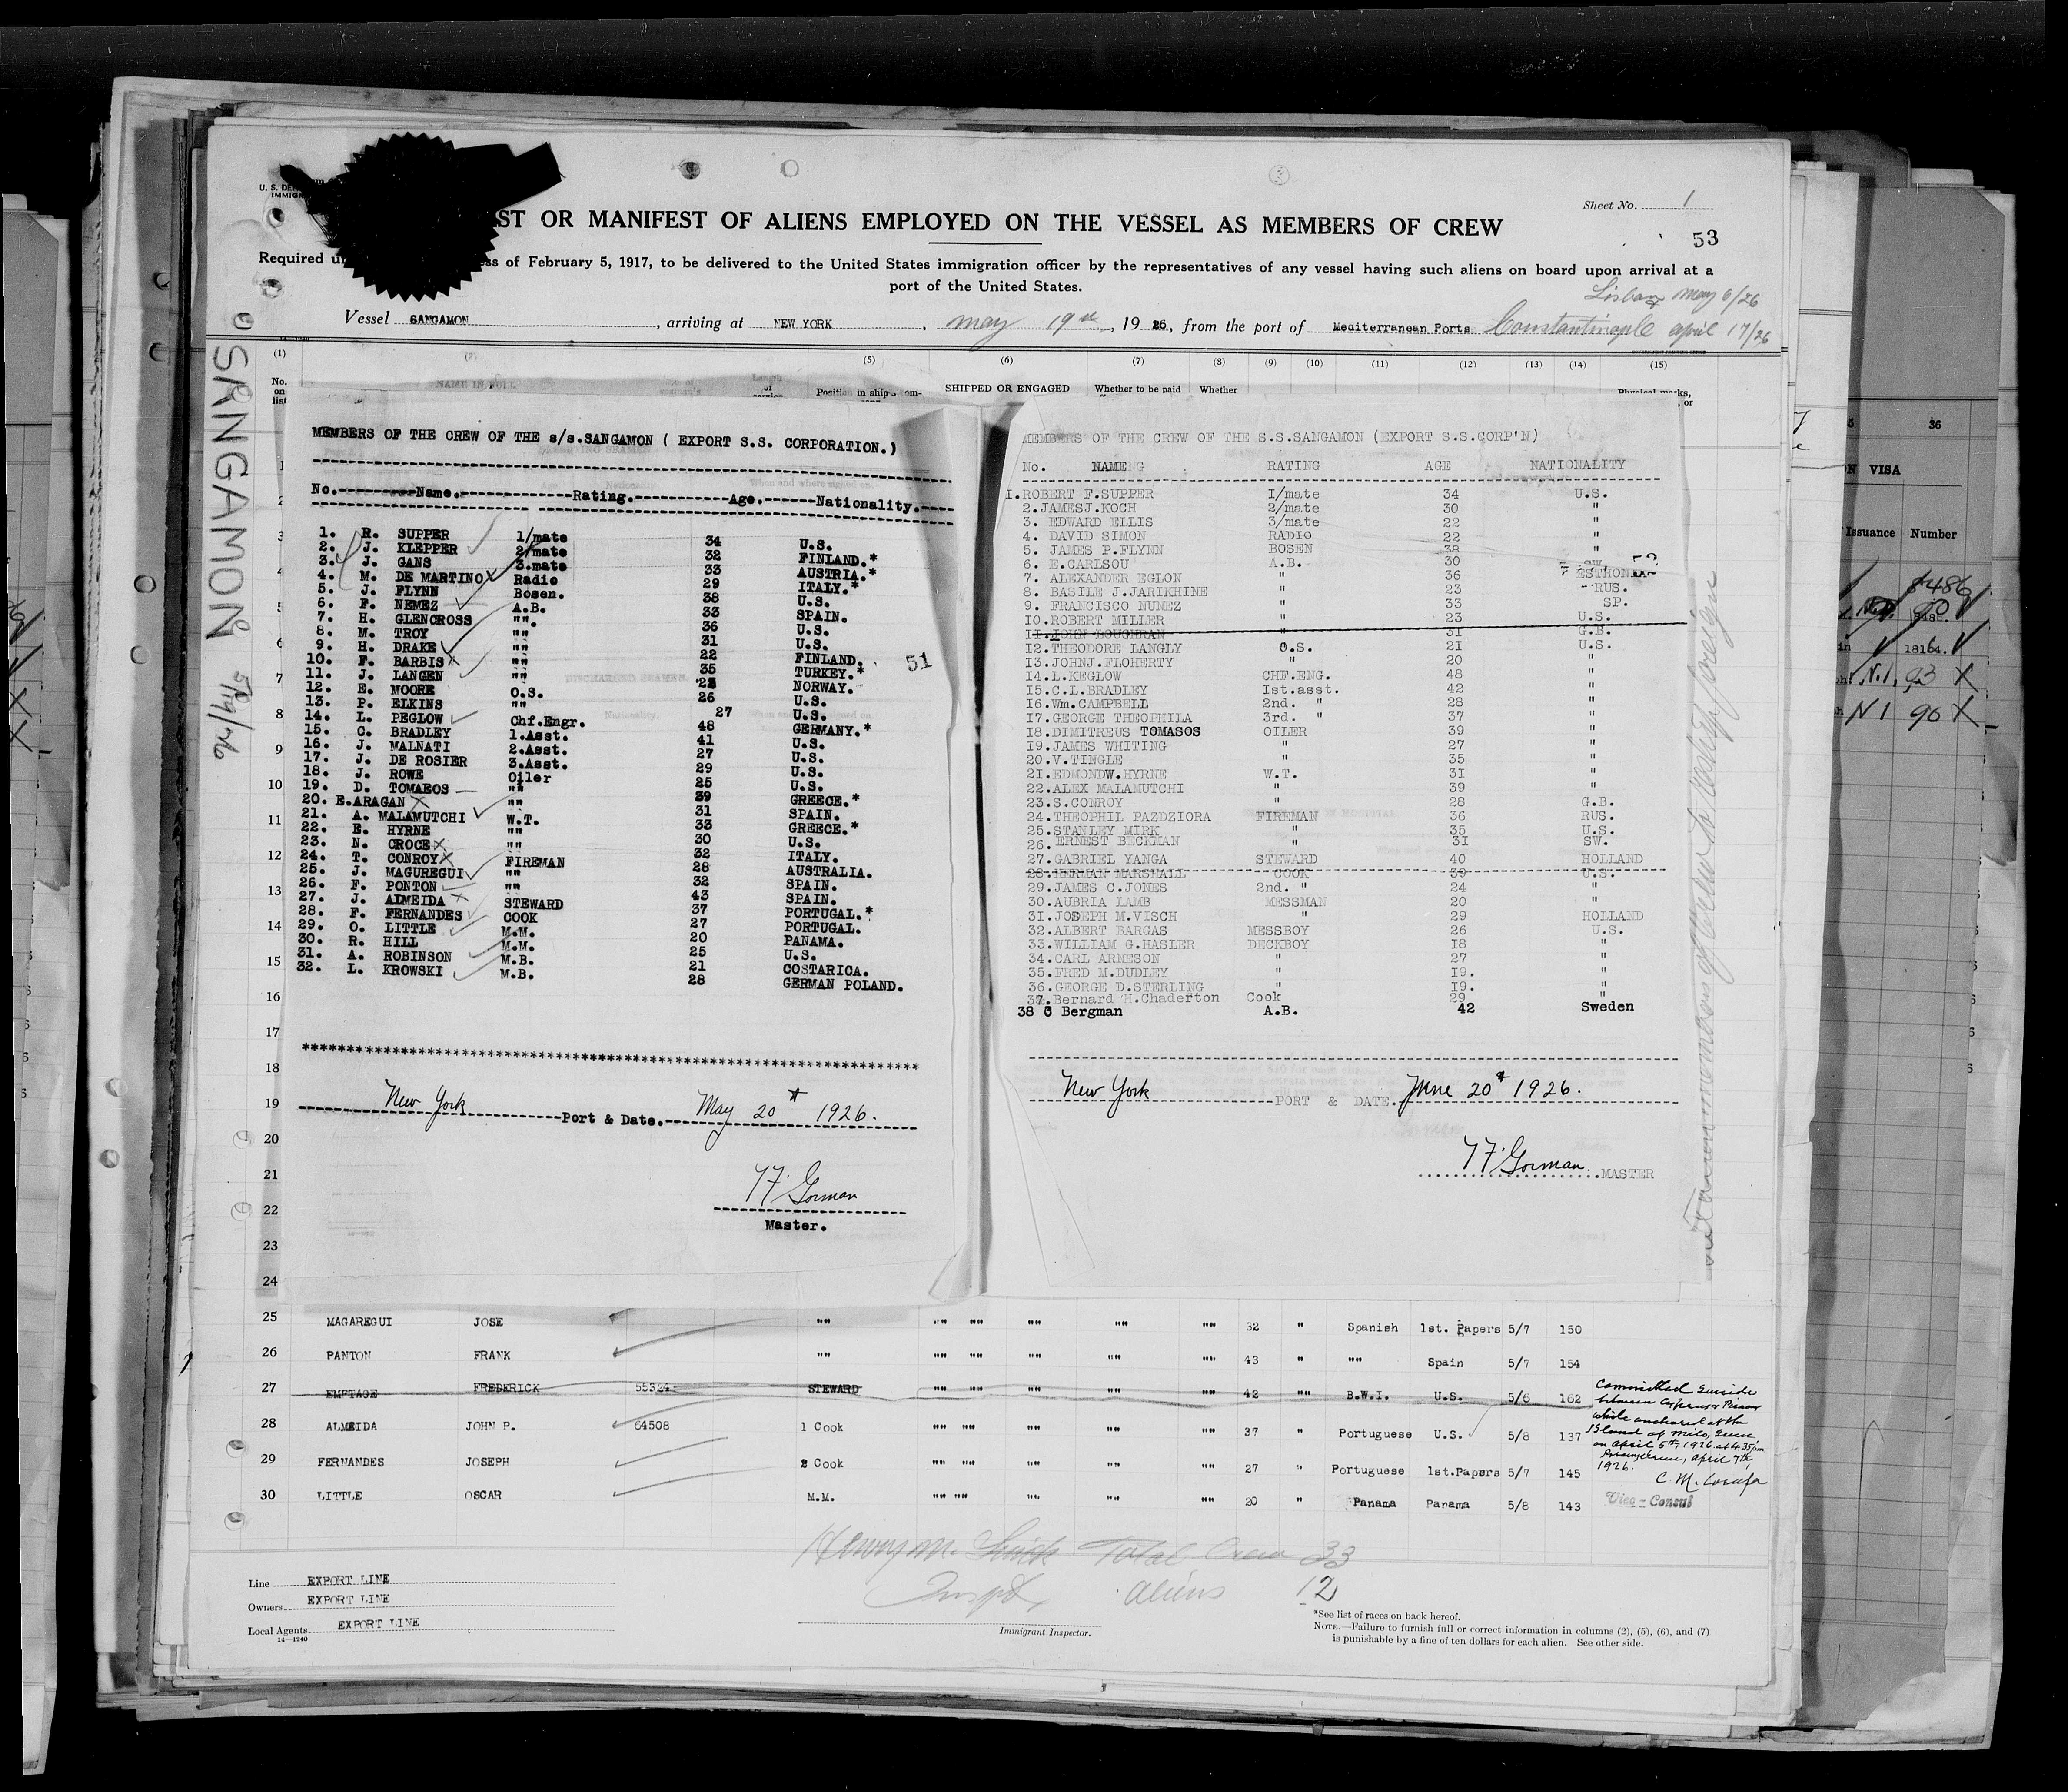 Sheet No. 1
53
ST OR MANIFEST OF ALIENS EMPLOYED ON THE VESSEL AS MEMBERS OF CREW
ss of February 5, 1917, to be delivered to the United States immigration officer by the representatives of any vessel having such aliens on board upon arrival at a
port of the United States.
Lisbon May 6/26
Vessel SANGAMON, arriving at NEW YORK, May 19th, 1926, from the port of Mediterranean Ports Constantinople April 17/26
(1) (2) (5) (6) (7) (8) (9) (10) (11) (12) (13) (14) (15)
No. on list
NAME IN FULL
Length of service
Position in ship's com-
SHIPPED OR ENGAGED
Whether to be paid
Whether
Physical marks,
SANGAMON 5/19/26
MEMBERS OF THE CREW OF THE s/s.SANGAMON ( EXPORT S.S. CORPORATION.)
No. Name. Rating. Age. Nationality.
1. R. SUPPER 1/mate 34 U.S.
2. J. KLEPPER 2/mate 32 FINLAND.*
3. J. GANS 3.mate 33 AUSTRIA.*
4. M. DE MARTINO Radio 29 ITALY.*
5. J. FLYNN Bosen. 38 U.S.
6. F. NEMEZ A.B. 33 SPAIN.
7. H. GLENCROSS "". 36 U.S.
8. M. TROY "" 31 U.S.
9. H. DRAKE "" 22 FINLAND.
10. F. BARBIS "" 35 TURKEY.*
11. J. LANGEN "" 25 NORWAY.
12. E. MOORE O.S. 26 U.S.
13. P. ELKINS "" 27 U.S.
14. L. PEGLOW Chf.Engr. 48 GERMANY.*
15. C. BRADLEY 1.Asst. 41 U.S.
16. J. MALNATI 2.Asst. 27 U.S.
17. J. DE ROSIER 3.Asst. 29 U.S.
18. J. ROWE Oiler 25 U.S.
19. D. TOMAEOS "" 39 GREECE.*
20. E.ARAGAN "" 31 SPAIN.
21. A. MALAMUTCHI W.T. 33 GREECE.*
22. E. HYRNE "" 30 U.S.
23. N. CROCE "" 32 ITALY.
24. T. CONROY FIREMAN 28 AUSTRALIA.
25. J. MAGUREGUI "" 32 SPAIN.
26. F. PONTON "" 43 SPAIN.
27. J. ALMEIDA STEWARD 37 PORTUGAL.*
28. F. FERNANDES COOK 27 PORTUGAL.
29. O. LITTLE M.M. 20 PANAMA.
30. R. HILL M.M. 25 U.S.
31. A. ROBINSON M.B. 21 COSTARICA.
32. L. KROWSKI M.B. 28 GERMAN POLAND.
51
New York Port & Date. May 20th 1926.
Gorman
Master.
MEMBERS OF THE CREW OF THE S.S.SANGAMON (EXPORT S.S.CORP'N)
No. NAME RATING AGE NATIONALITY
1.ROBERT F.SUPPER I/mate 34 U.S.
2.JAMESJ.KOCH 2/mate 30 "
3. EDWARD ELLIS 3/mate 22 "
4. DAVID SIMON RADIO 22 "
5. JAMES P.FLYNN BOSEN 38 "
6. E.CARLSOU A.B. 30 SW.
7. ALEXANDER EGLON " 36 ESTHONIA
8. BASILE J.JARIKHINE " 23 RUS.
9. FRANCISCO NUNEZ " 33 SP.
10.ROBERT MILLER " 23 U.S.
11.JOHN LOUGHRAN " 31 G.B.
12.THEODORE LANGLY O.S. 21 U.S.
13.JOHNJ.FLOHERTY " 20 "
14.L.KEGLOW CHF.ENG. 48 "
15.C.L.BRADLEY Ist.asst. 42 "
16.Wm.CAMPBELL 2nd. " 28 "
17.GEORGE THEOPHILA 3rd. " 37 "
18.DIMITREUS TOMASOS OILER 39 "
19.JAMES WHITING " 27 "
20.V.TINGLE " 35 "
21.EDMONDW.HYRNE W.T. 31 "
22.ALEX MALAMUTCHI " 39 "
23.S.CONROY " 28 G.B.
24.THEOPHIL PAZDZIORA FIREMAN 36 RUS.
25.STANLEY MIRK " 35 U.S.
26.ERNEST BECKMAN " 31 SW.
27.GABRIEL YANGA STEWARD 40 HOLLAND
28.HERMAN MARSHALL COOK 39 U.S.
29.JAMES C.JONES 2nd. " 24 "
30.AUBRIA LAMB MESSMAN 20 "
31.JOSEPH M.VISCH " 29 HOLLAND
32.ALBERT BARGAS MESSBOY 26 U.S.
33.WILLIAM G.HASLER DECKBOY 18 "
34.CARL ARNESON " 27 "
35.FRED M.DUDLEY " 19. "
36.GEORGE D.STERLING " 19. "
37.Bernard H.Chaderton Cook 29 "
38 O Bergman A.B. 42 Sweden
New York PORT & DATE. June 20th 1926.
Gorman MASTER
25 MAGAREGUI JOSE "" "" "" "" "" "" 32 " Spanish 1st. Papers 5/7 150
26 PANTON FRANK "" "" "" "" "" "" 43 " "" Spain 5/7 154
27 EMPTAGE FREDERICK 55324 STEWARD "" "" "" "" "" 42 "" B.W.I. U.S. 5/8 162
28 ALMEIDA JOHN P. 64508 1 Cook "" "" "" "" "" 37 " Portuguese U.S. 5/8 137
29 FERNANDES JOSEPH 2 Cook "" "" "" "" "" 27 " Portuguese 1st.Papers 5/7 145
30 LITTLE OSCAR M.M. "" "" "" "" "" 20 " Panama Panama 5/8 143
Committed suicide
while anchored at the
Island of Milo, Greece
on April 5th, 1926 at 4.35 pm
April 7th,
1926.
Vice-Consul
Henry M. Total Crew 33
Inspt. aliens 12
Immigrant Inspector.
Line EXPORT LINE
Owners EXPORT LINE
Local Agents EXPORT LINE
14—1240
*See list of races on back hereof.
NOTE.—Failure to furnish full or correct information in columns (2), (5), (6), and (7)
is punishable by a fine of ten dollars for each alien. See other side.
36
VISA
Issuance Number
8486
18164.
N.I. 93 X
N I 90 X